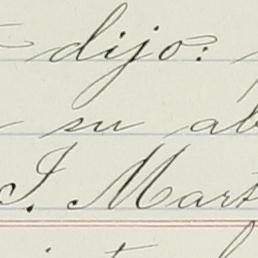 dijo:
su ab
J. Mart